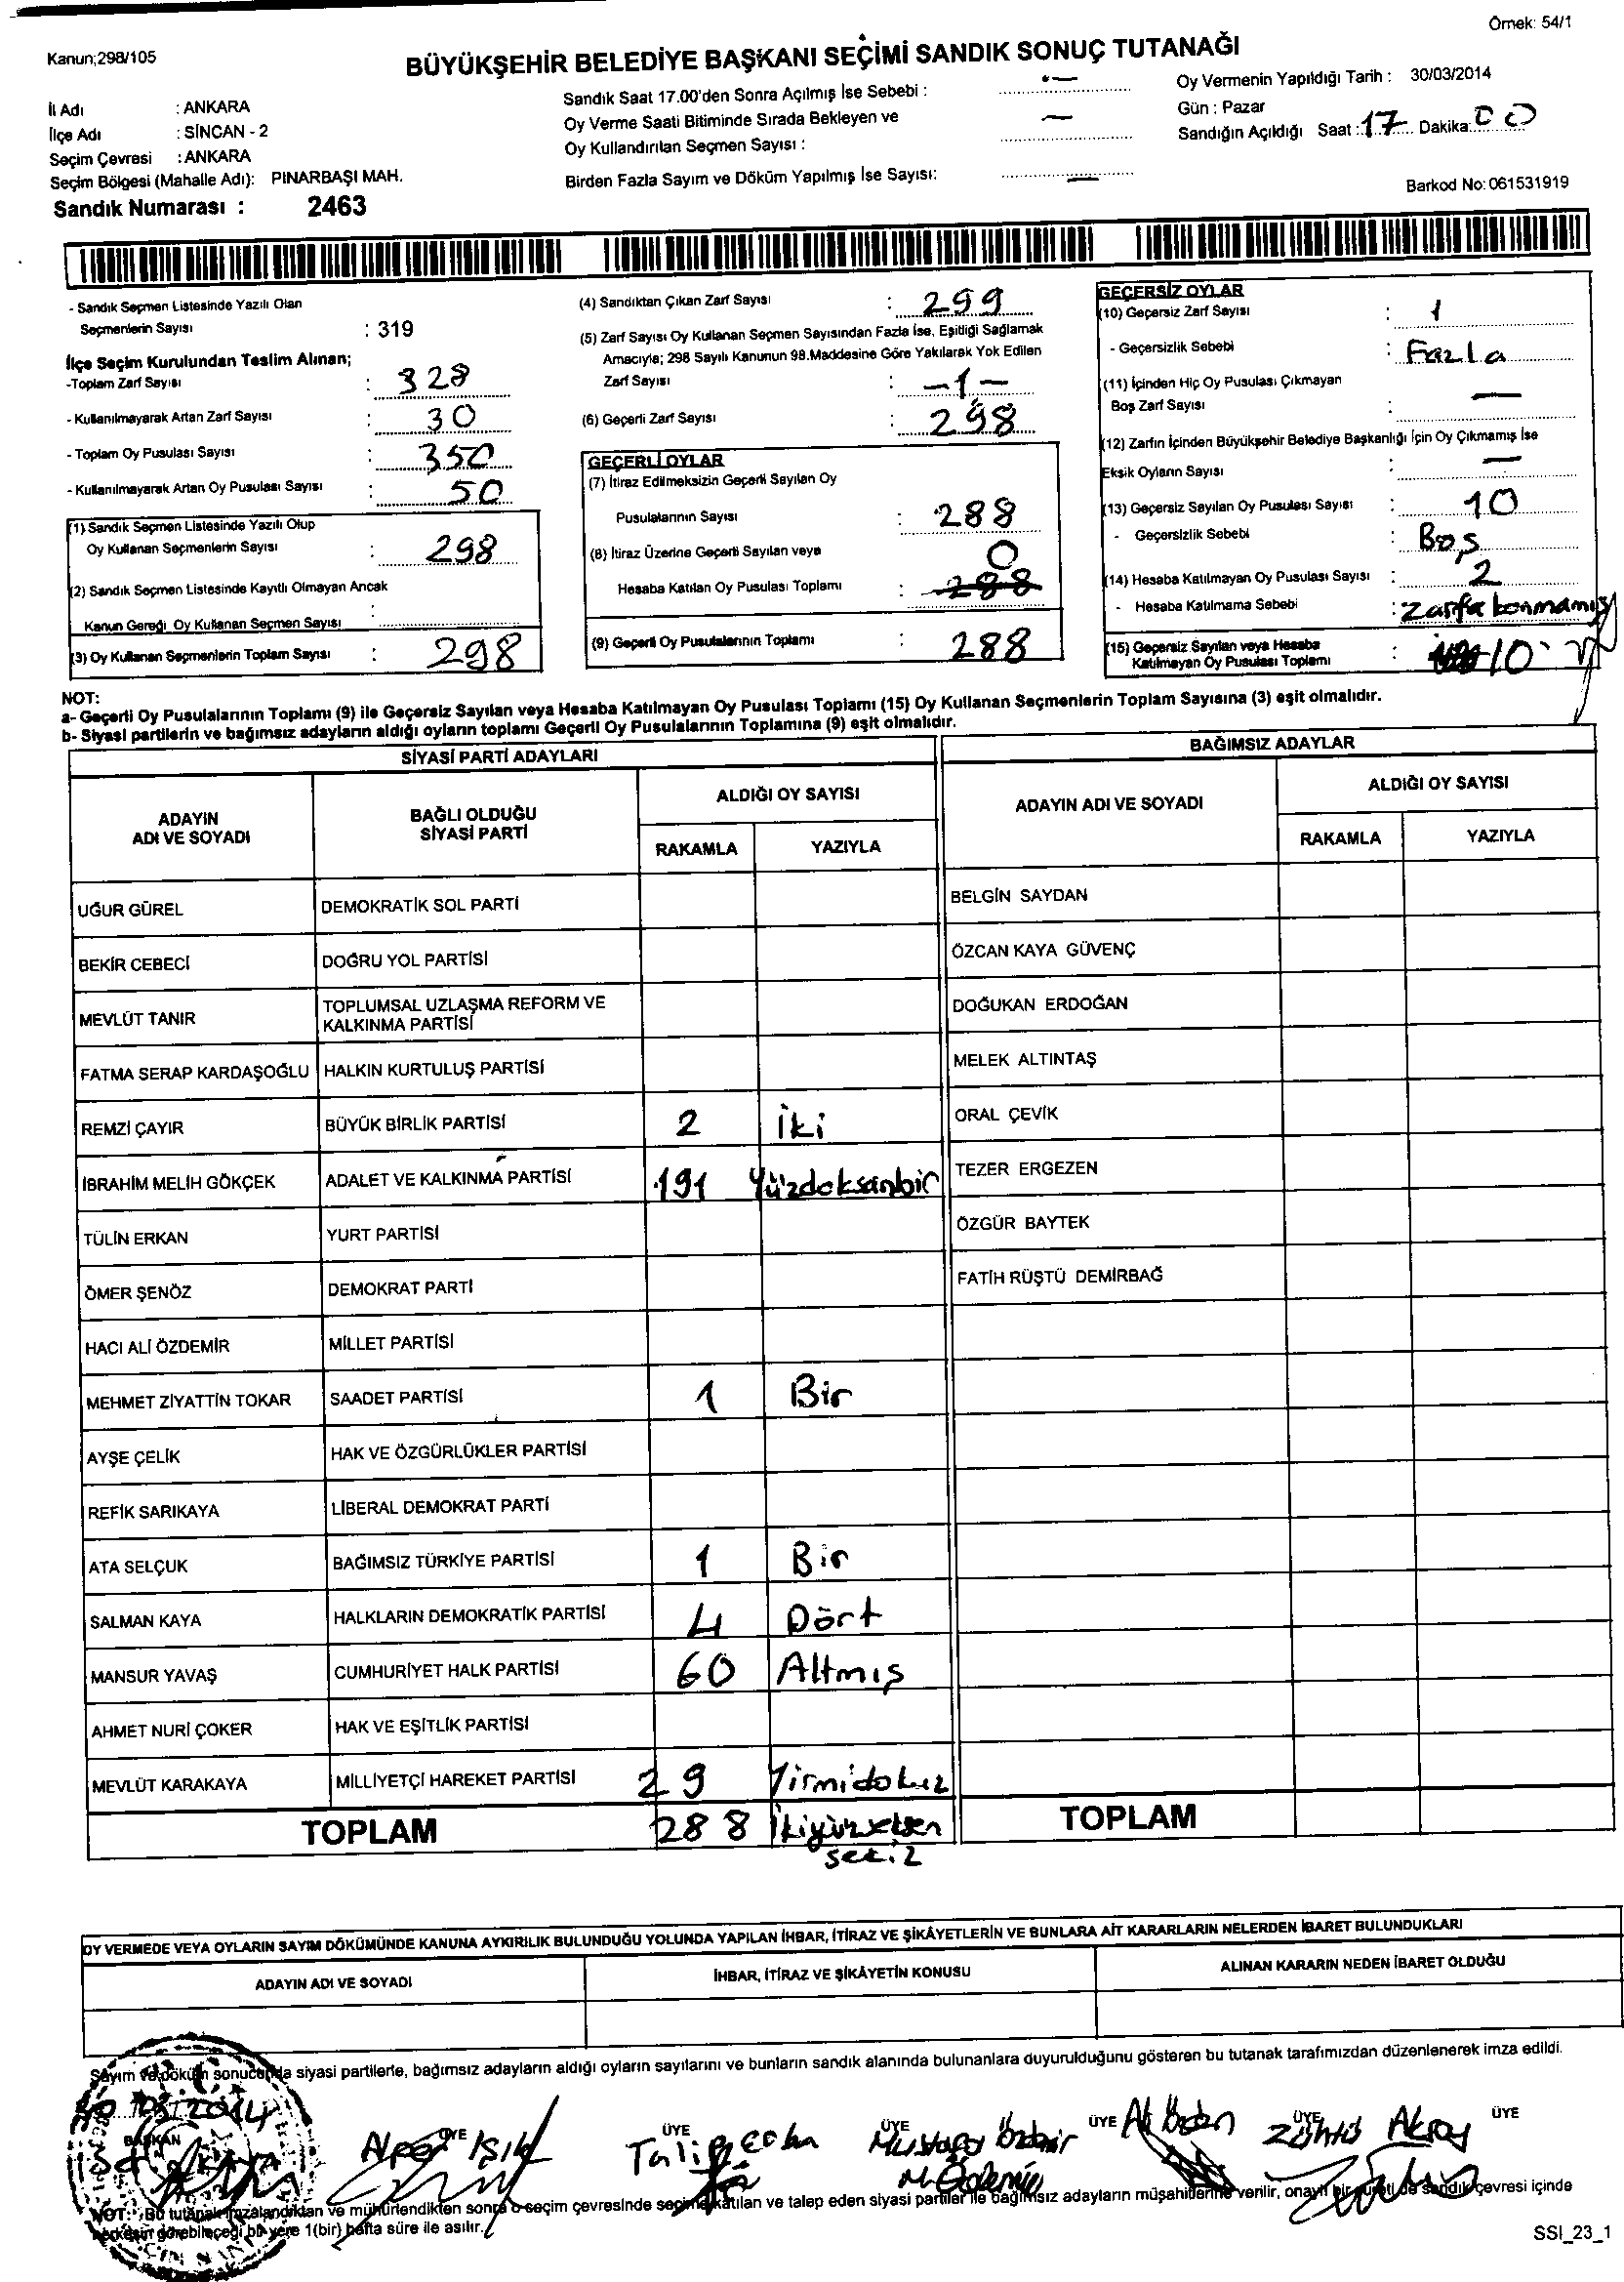 Örnek: 54/1
Kanun;298/105
BÜYÜKŞEHİR BELEDİYE BAŞKANI SEÇİMİ SANDIK SONUÇ TUTANAĞI
İl Adı : ANKARA
İlçe Adı : SİNCAN - 2
Seçim Çevresi : ANKARA
Seçim Bölgesi (Mahalle Adı): PINARBAŞI MAH.
Sandık Numarası : 2463
Sandık Saat 17.00'den Sonra Açılmış İse Sebebi : —
Oy Verme Saati Bitiminde Sırada Bekleyen ve
Oy Kullandırılan Seçmen Sayısı : —
Birden Fazla Sayım ve Döküm Yapılmış İse Sayısı: —
Oy Vermenin Yapıldığı Tarih : 30/03/2014
Gün : Pazar
Sandığın Açıldığı Saat : 17 Dakika: 00
Barkod No: 061531919
- Sandık Seçmen Listesinde Yazılı Olan
Seçmenlerin Sayısı : 319
İlçe Seçim Kurulundan Teslim Alınan;
-Toplam Zarf Sayısı : 328
- Kullanılmayarak Artan Zarf Sayısı : 30
- Toplam Oy Pusulası Sayısı : 350
- Kullanılmayarak Artan Oy Pusulası Sayısı : 50
(1) Sandık Seçmen Listesinde Yazılı Olup
Oy Kullanan Seçmenlerin Sayısı : 298
(2) Sandık Seçmen Listesinde Kayıtlı Olmayan Ancak
Kanun Gereği Oy Kullanan Seçmen Sayısı :
(3) Oy Kullanan Seçmenlerin Toplam Sayısı : 298
(4) Sandıktan Çıkan Zarf Sayısı : 299
(5) Zarf Sayısı Oy Kullanan Seçmen Sayısından Fazla İse, Eşitliği Sağlamak
Amacıyla; 298 Sayılı Kanunun 98.Maddesine Göre Yakılarak Yok Edilen
Zarf Sayısı : -1-
(6) Geçerli Zarf Sayısı : 298
GEÇERLİ OYLAR
(7) İtiraz Edilmeksizin Geçerli Sayılan Oy
Pusulalarının Sayısı : 288
(8) İtiraz Üzerine Geçerli Sayılan veya 0
Hesaba Katılan Oy Pusulası Toplamı : 288
(9) Geçerli Oy Pusulalarının Toplamı : 288
GEÇERSİZ OYLAR
(10) Geçersiz Zarf Sayısı : 1
- Geçersizlik Sebebi : Fazla
(11) İçinden Hiç Oy Pusulası Çıkmayan
Boş Zarf Sayısı : —
(12) Zarfın İçinden Büyükşehir Belediye Başkanlığı İçin Oy Çıkmamış İse
Eksik Oyların Sayısı : —
(13) Geçersiz Sayılan Oy Pusulası Sayısı : 10
- Geçersizlik Sebebi : Boş
(14) Hesaba Katılmayan Oy Pusulası Sayısı : 2
- Hesaba Katılmama Sebebi : Zarfa konmamış
(15) Geçersiz Sayılan veya Hesaba
Katılmayan Oy Pusulası Toplamı : 10
NOT:
a- Geçerli Oy Pusulalarının Toplamı (9) ile Geçersiz Sayılan veya Hesaba Katılmayan Oy Pusulası Toplamı (15) Oy Kullanan Seçmenlerin Toplam Sayısına (3) eşit olmalıdır.
b- Siyasi partilerin ve bağımsız adayların aldığı oyların toplamı Geçerli Oy Pusulalarının Toplamına (9) eşit olmalıdır.
SİYASİ PARTİ ADAYLARI
BAĞIMSIZ ADAYLAR
ADAYIN ADI VE SOYADI
BAĞLI OLDUĞU SİYASİ PARTİ
ALDIĞI OY SAYISI
RAKAMLA YAZIYLA
ADAYIN ADI VE SOYADI
ALDIĞI OY SAYISI
RAKAMLA YAZIYLA
UĞUR GÜREL DEMOKRATİK SOL PARTİ BELGİN SAYDAN
BEKİR CEBECİ DOĞRU YOL PARTİSİ ÖZCAN KAYA GÜVENÇ
MEVLÜT TANIR TOPLUMSAL UZLAŞMA REFORM VE KALKINMA PARTİSİ DOĞUKAN ERDOĞAN
FATMA SERAP KARDAŞOĞLU HALKIN KURTULUŞ PARTİSİ MELEK ALTINTAŞ
REMZİ ÇAYIR BÜYÜK BİRLİK PARTİSİ 2 İki ORAL ÇEVİK
İBRAHİM MELİH GÖKÇEK ADALET VE KALKINMA PARTİSİ 191 Yüzdoksanbir TEZER ERGEZEN
TÜLİN ERKAN YURT PARTİSİ ÖZGÜR BAYTEK
ÖMER ŞENÖZ DEMOKRAT PARTİ FATİH RÜŞTÜ DEMİRBAĞ
HACI ALİ ÖZDEMİR MİLLET PARTİSİ
MEHMET ZİYATTİN TOKAR SAADET PARTİSİ 1 Bir
AYŞE ÇELİK HAK VE ÖZGÜRLÜKLER PARTİSİ
REFİK SARIKAYA LİBERAL DEMOKRAT PARTİ
ATA SELÇUK BAĞIMSIZ TÜRKİYE PARTİSİ 1 Bir
SALMAN KAYA HALKLARIN DEMOKRATİK PARTİSİ 4 Dört
MANSUR YAVAŞ CUMHURİYET HALK PARTİSİ 60 Altmış
AHMET NURİ ÇOKER HAK VE EŞİTLİK PARTİSİ
MEVLÜT KARAKAYA MİLLİYETÇİ HAREKET PARTİSİ 29 Yirmidokuz
TOPLAM 288 İkiyüzseksen TOPLAM
sekiz
OY VERMEDE VEYA OYLARIN SAYIM DÖKÜMÜNDE KANUNA AYKIRILIK BULUNDUĞU YOLUNDA YAPILAN İHBAR, İTİRAZ VE ŞİKÂYETLERİN VE BUNLARA AİT KARARLARIN NELERDEN İBARET BULUNDUKLARI
ADAYIN ADI VE SOYADI İHBAR, İTİRAZ VE ŞİKÂYETİN KONUSU ALINAN KARARIN NEDEN İBARET OLDUĞU
Sayım ve döküm sonucunda siyasi partilerle, bağımsız adayların aldığı oyların sayılarını ve bunların sandık alanında bulunanlara duyurulduğunu gösteren bu tutanak tarafımızdan düzenlenerek imza edildi.
BAŞKAN ÜYE ÜYE ÜYE ÜYE ÜYE ÜYE
Işık Talip Mustafa Özdemir Ali Zühtü Akay
M. Özdemir
NOT: Bu tutanak imzalandıktan ve mühürlendikten sonra o seçim çevresinde seçime katılan ve talep eden siyasi partiler ile bağımsız adayların müşahitlerine verilir, onaylı bir sureti de sandık çevresi içinde
herkesin görebileceği bir yere 1(bir) hafta süre ile asılır.
SSI_23_1